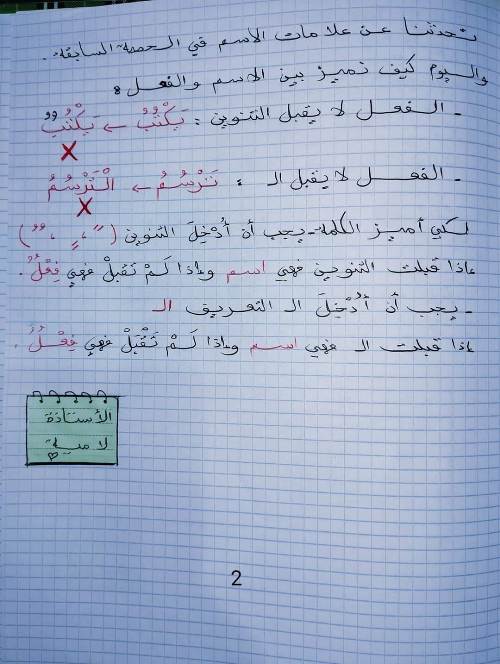 تحدثنا عن علامات الاسم في الحصة السابقة.
واليوم كيف نميز بين الاسم والفعل:
- الفعل لا يقبل التنوين: يَكْتُبُ ← يَكْتُبٌ
X
- الفعل لا يقبل الـ: نَرْسُمُ ← الْنَرْسُمُ
X
لكي أميز الكلمة - يجب أن أُدْخِلَ التنوين (ـً، ـٍ، ـٌ)
إذا قبلت التنوين فهي اسم وإذا لَمْ تَقْبَلْ فهي فِعْلٌ.
- يجب أن أُدْخِلَ الـ التعريف الـ
إذا قبلت الـ فهي اسم وإذا لَمْ تَقْبَلْ فهي فِعْلٌ.
الأستاذة
لامية
2